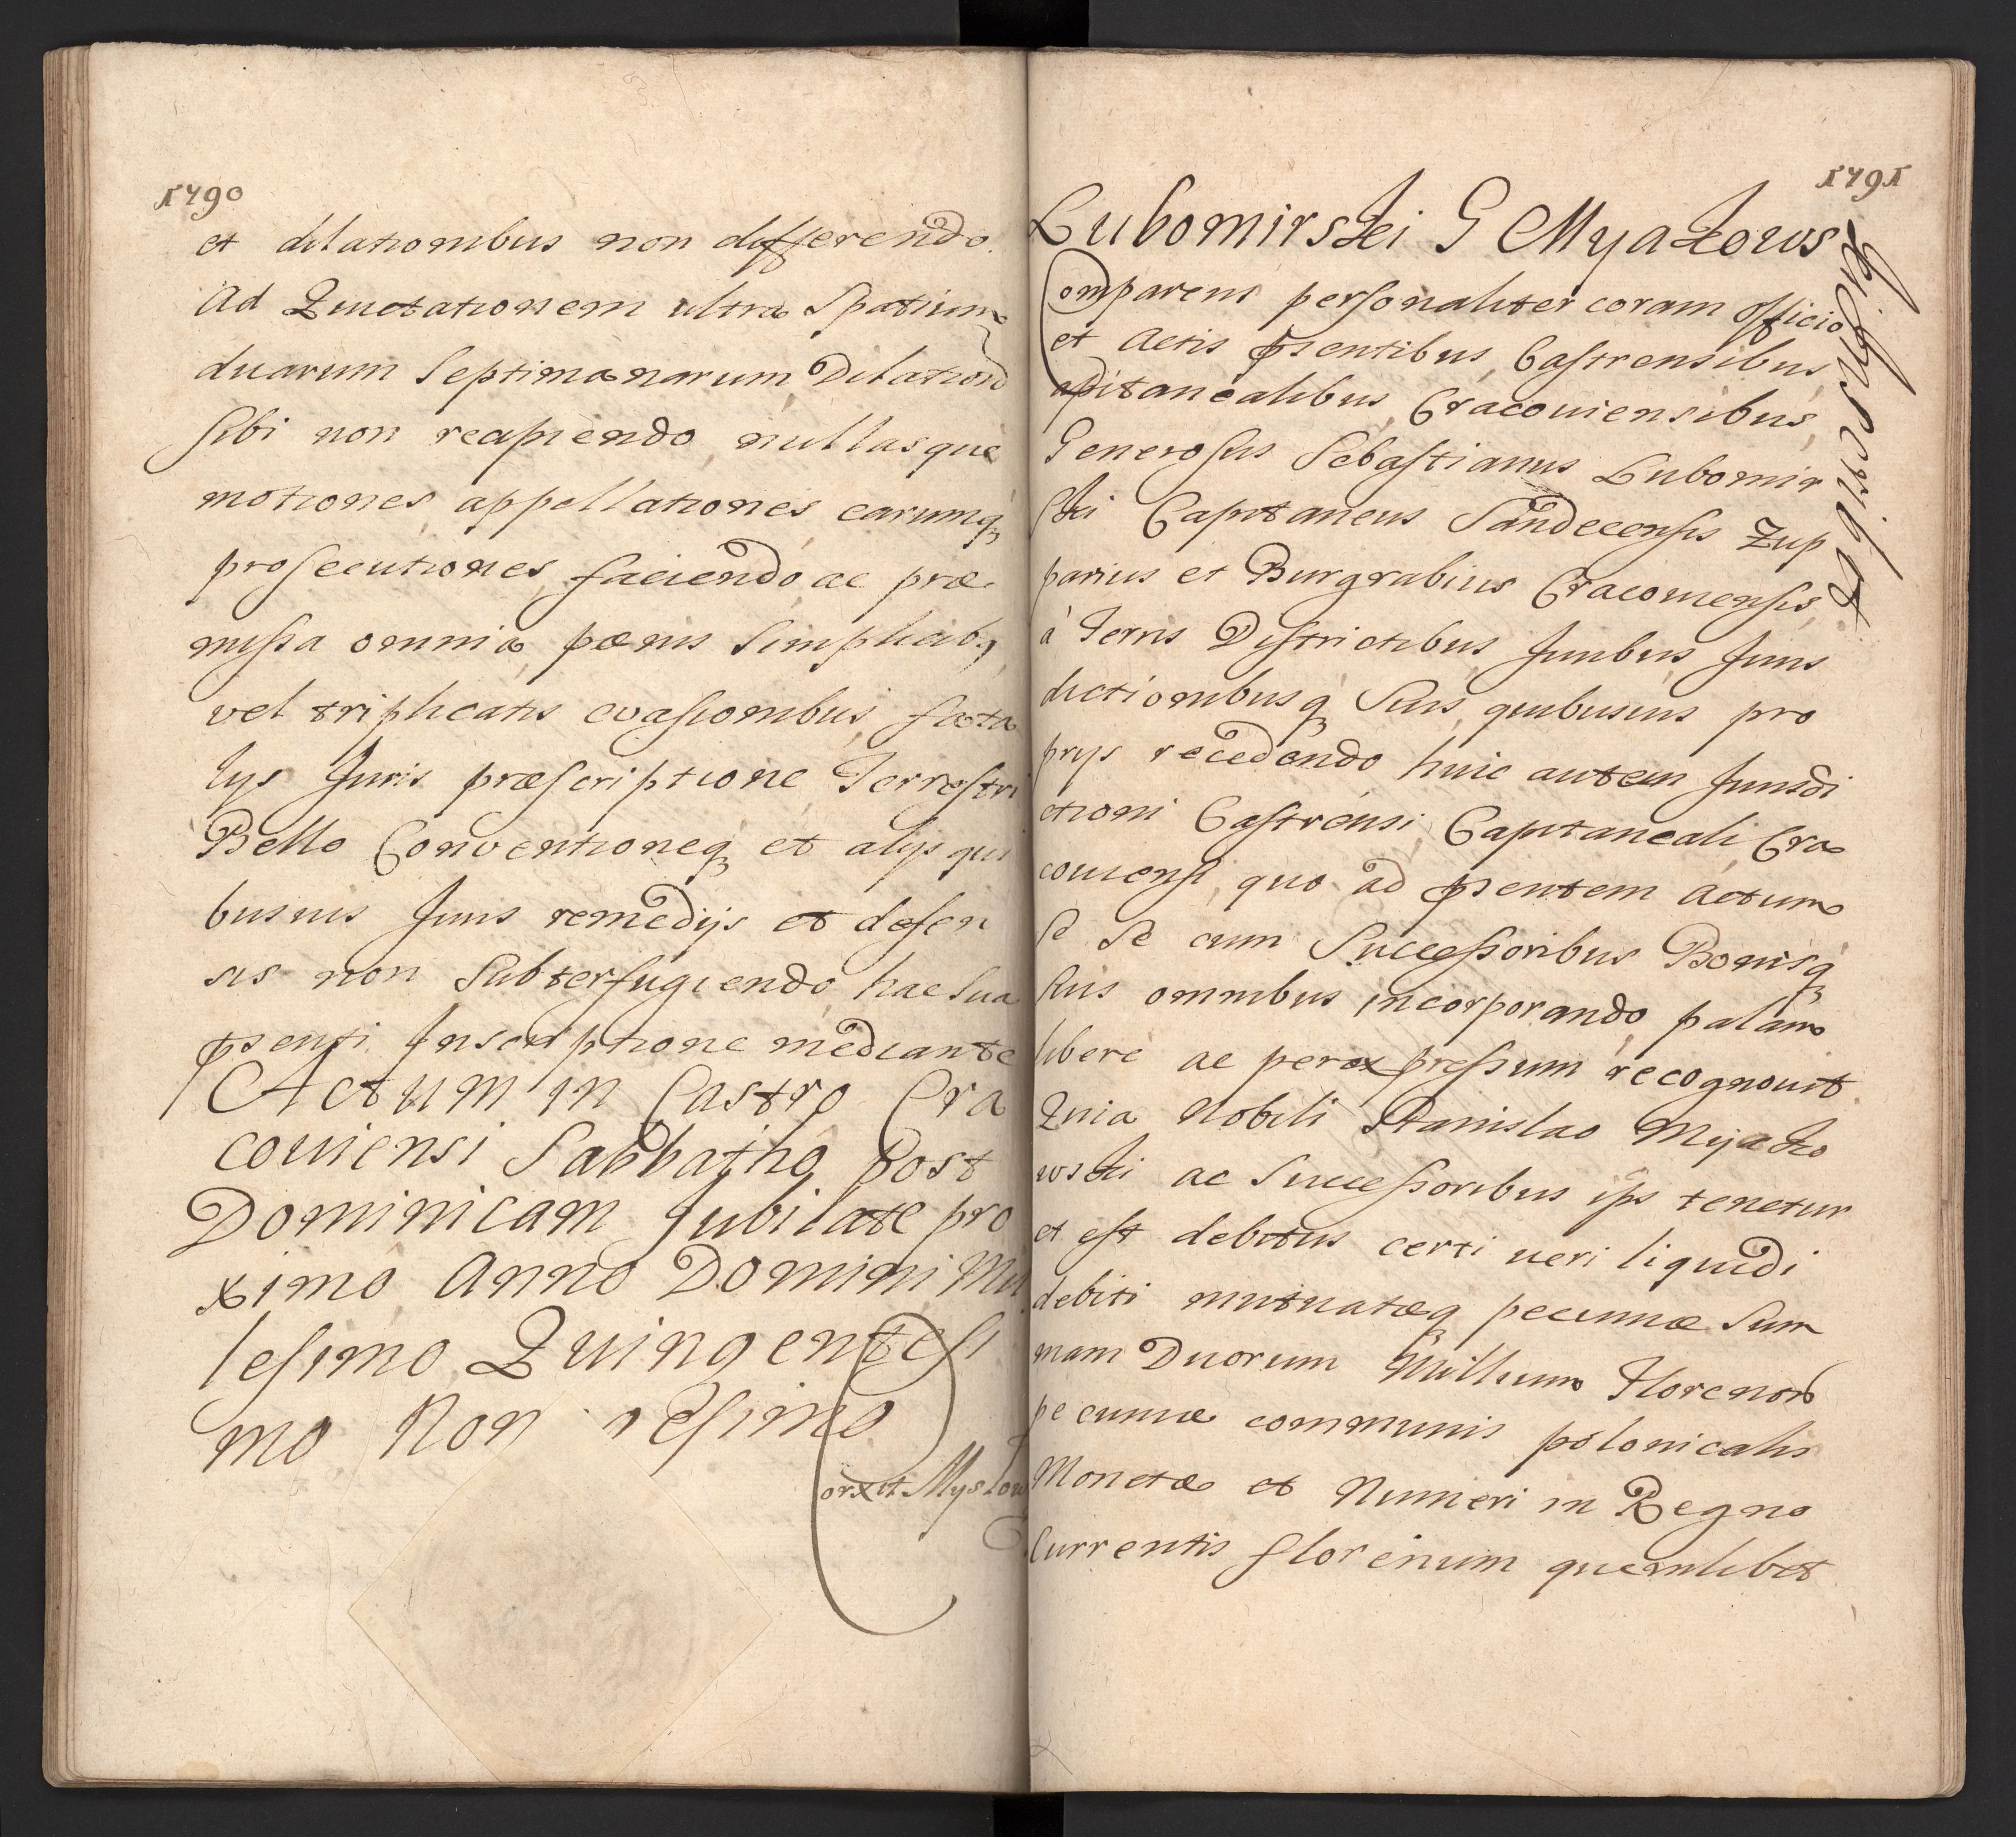 1790
et dilationibus non differendo.
Ad Quietationem ultra Spatium
duarum Septimanarum Dilation
sibi non recipiendo nullasque
motiones appellationes earumq
prosecutiones faciendo ac præ
missa omnia pænis simplicib,
vel triplicatis evasionibus, fata
lys Juris præscriptione Terrestri
Bello Conventioneq et alys qui
busvis Juris remedijs et defen
sis non subterfugiendo hac sua
pñsenti Inscriptione mediante
Actum in Castro Cra
coviensi Sabbatho Post
Dominicam Jubilate pro
ximo Anno Domini Mil
lesimo Quingentesi
mo Non gesimo
Corxit Myslow
1791
Lubomirski G Myakows
ki Inscribit
Comparens personaliter coram officio
et Actis pñsentibus Castrensibus
Capitanealibus Cracoviensibus,
Generosus Sebastianus Lubomir
ski Capitaneus Sandecensis Zup
parius et Burgrabius Cracoviensis,
à Terris Districtibus Juribus Juris
dictionibusq Suis, quibusvis pro
prys recedendo huic autem Jurisdi
ctioni Castrensi Capitaneali Cra
coviensi, quo ad pñsentem Actum
se se cum Successoribus Bonisq
suis omnibus incorporando, palam
libere ac per expressum recognovit
Quia Nobili Stanislao Myako
wski ac Successoribus ips tenetur
et est debitus certi veri liquidi
debiti mutuatæq pecuniæ Sum
mam Duorum Millium Florenor
pecuniæ communis polonicalis
Monetæ et Numeri in Regno
Currentis florenum quemlibet